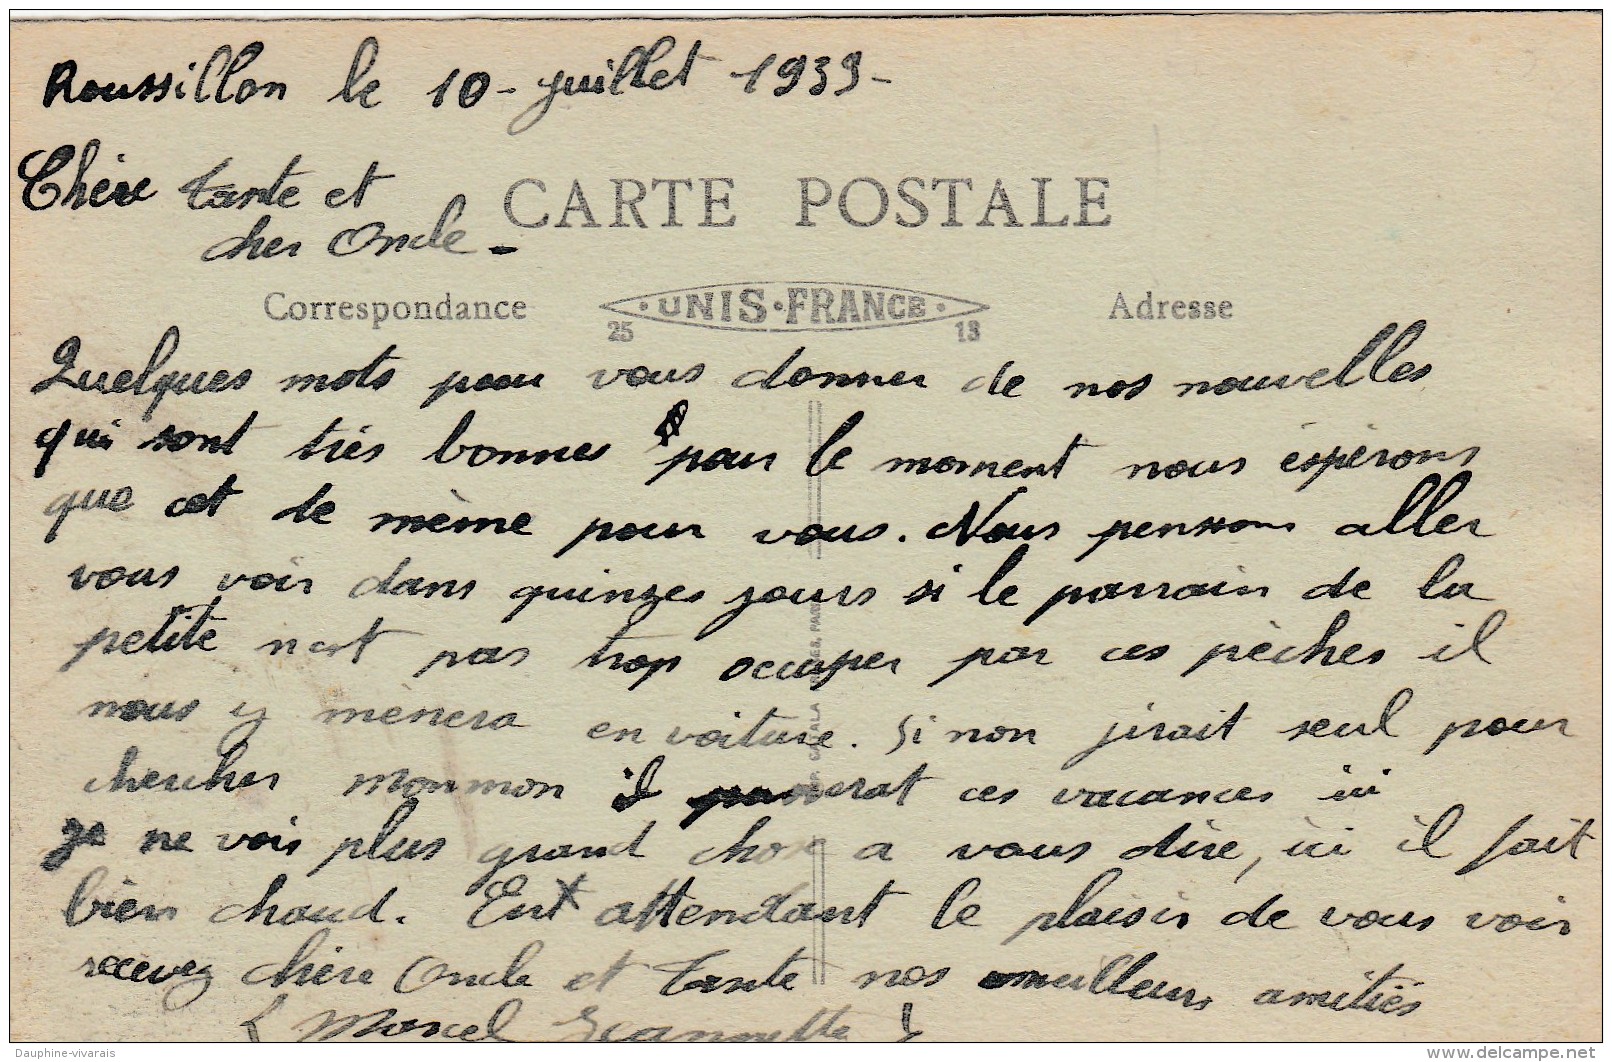 Roussillon le 10 - juillet 1939 -
Chère tante et
CARTE POSTALE
cher Oncle -
Correspondance
·UNIS·FRANCE·
25 13
Adresse
Quelques mots pour vous donner de nos nouvelles
qui sont très bonnes pour le moment nous éspérons
que cet de mème pour vous. Nous penssons aller
vous voir dans quinzes jours si le parrain de la
petite n'est pas trop occuper par ces pèches il
nous y mènera en voiture. Si non jirait seul pour
chercher Monmon il passerat ces vacances ici
je ne vois plus grand chose a vous dire, ici il fait
bien chaud. Ent attendant le plaisir de vous voir
recevez chère Oncle et Tante nos meilleurs amitiés
( Marcel Jeannette )
Dauphine-vivarais
www.delcampe.net